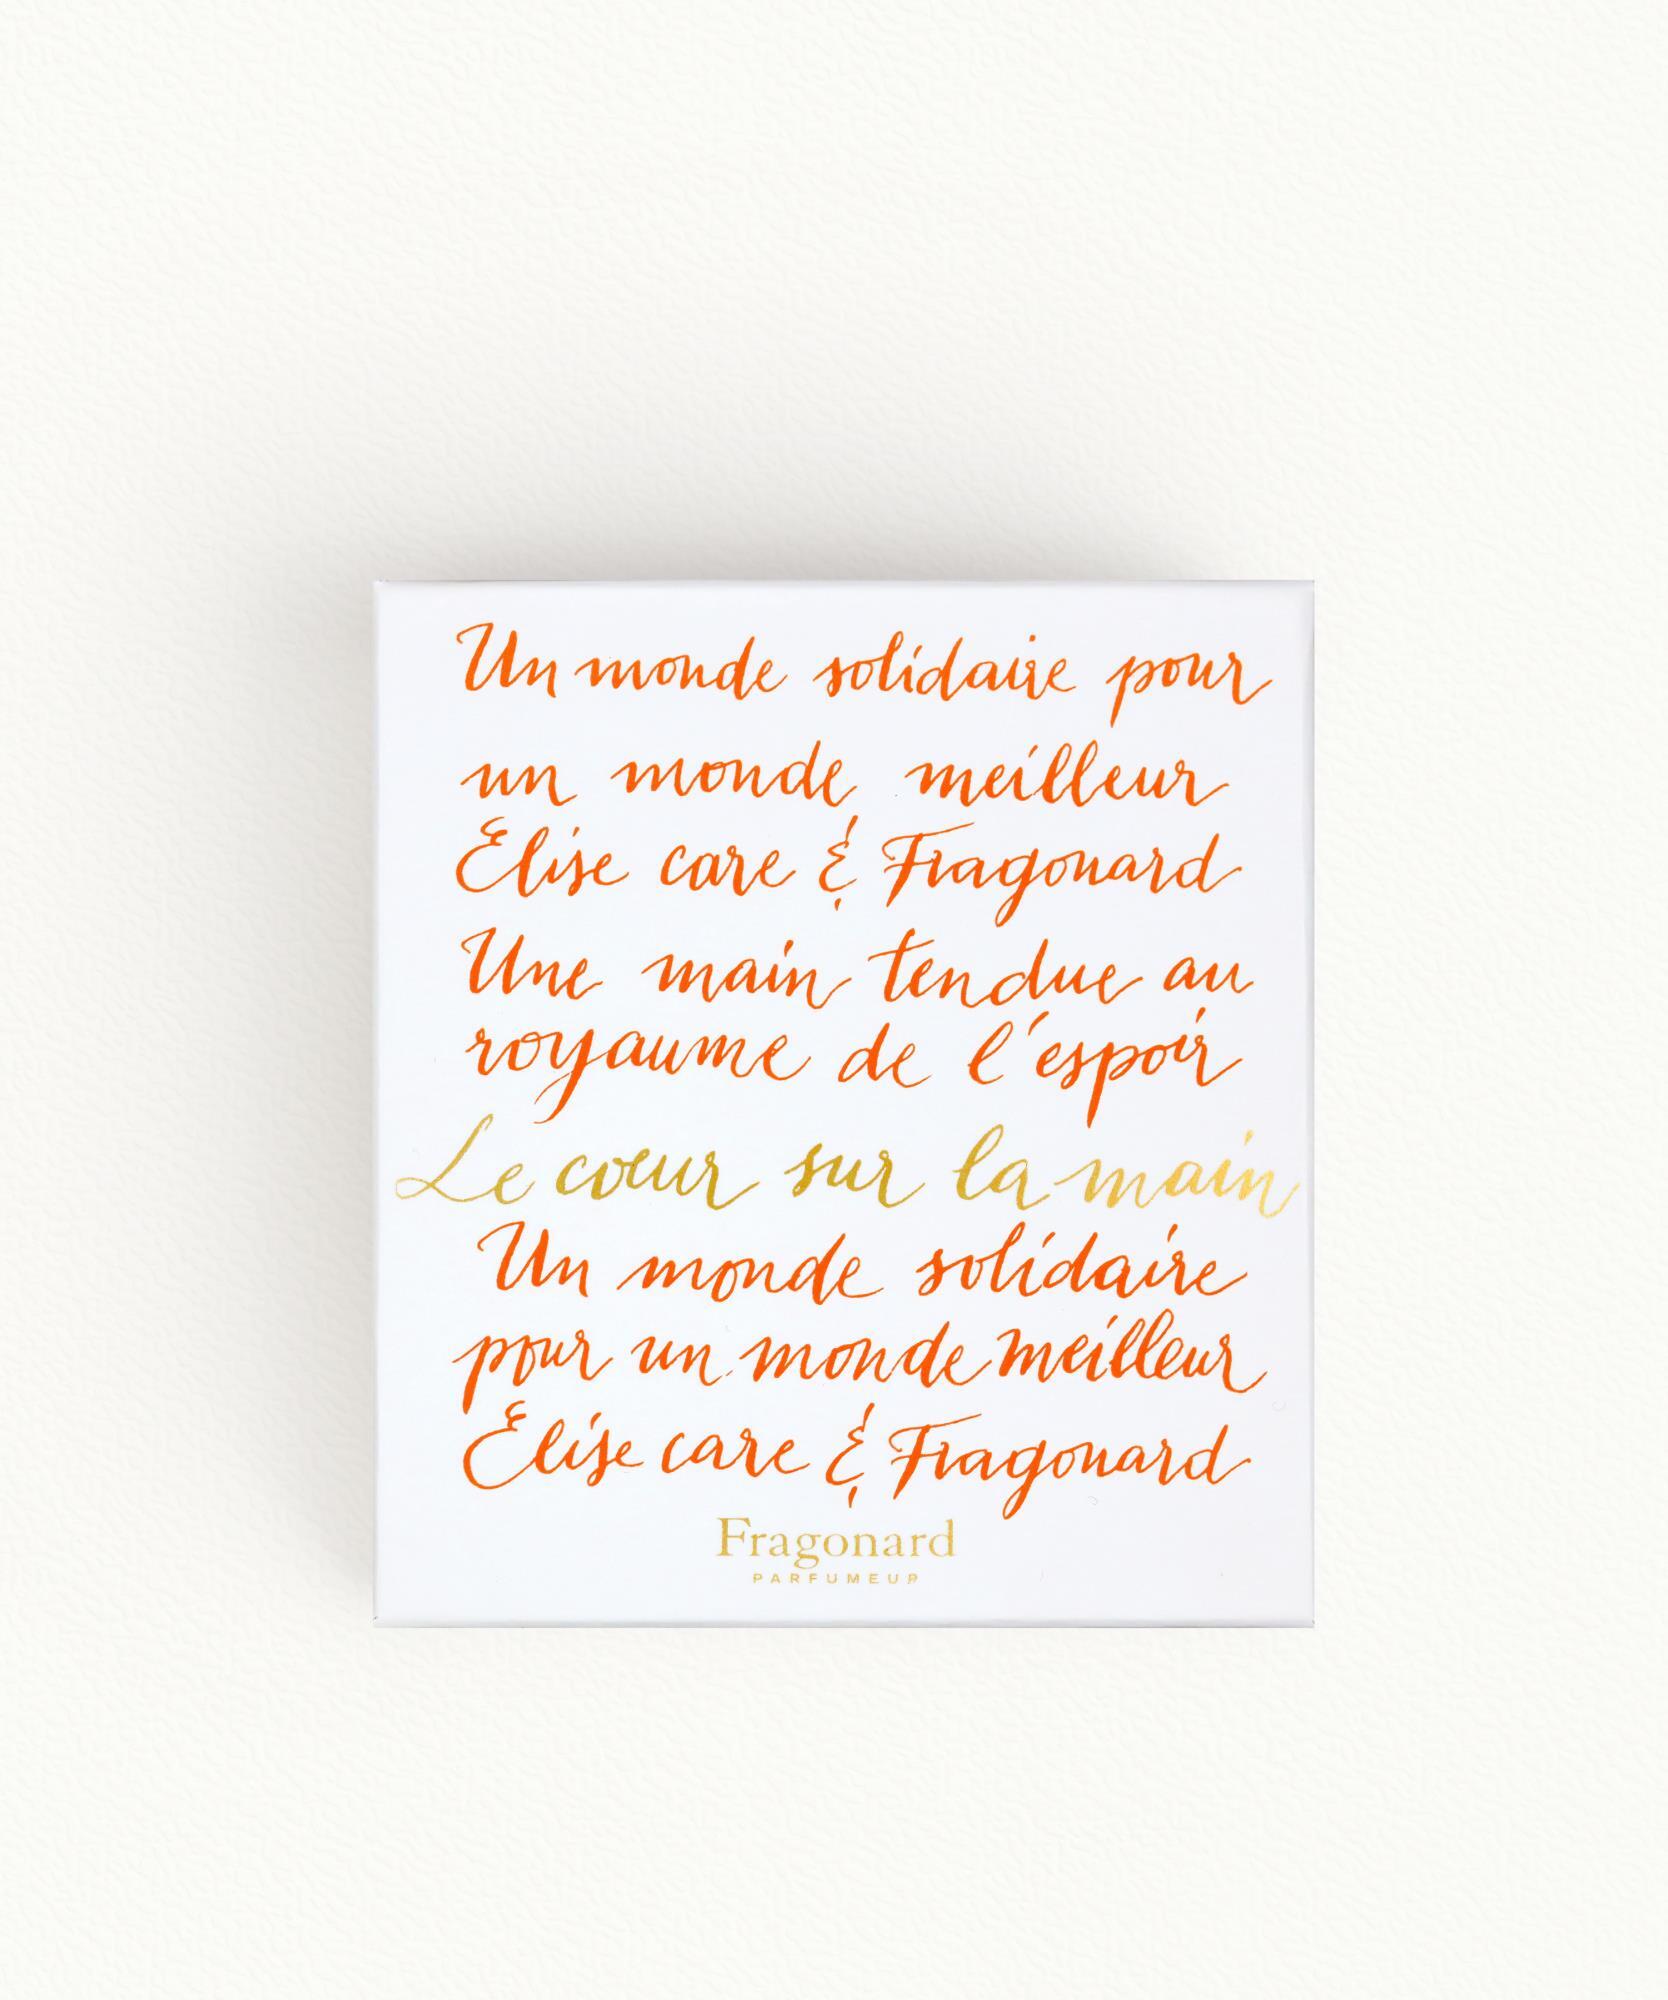 Un monde solidaire pour
un monde meilleur
Elise care & Fragonard
Une main tendue au
royaume de l'espoir
Le cœur sur la main
Un monde solidaire
pour un monde meilleur
Elise care & Fragonard
Fragonard
PARFUMEUR